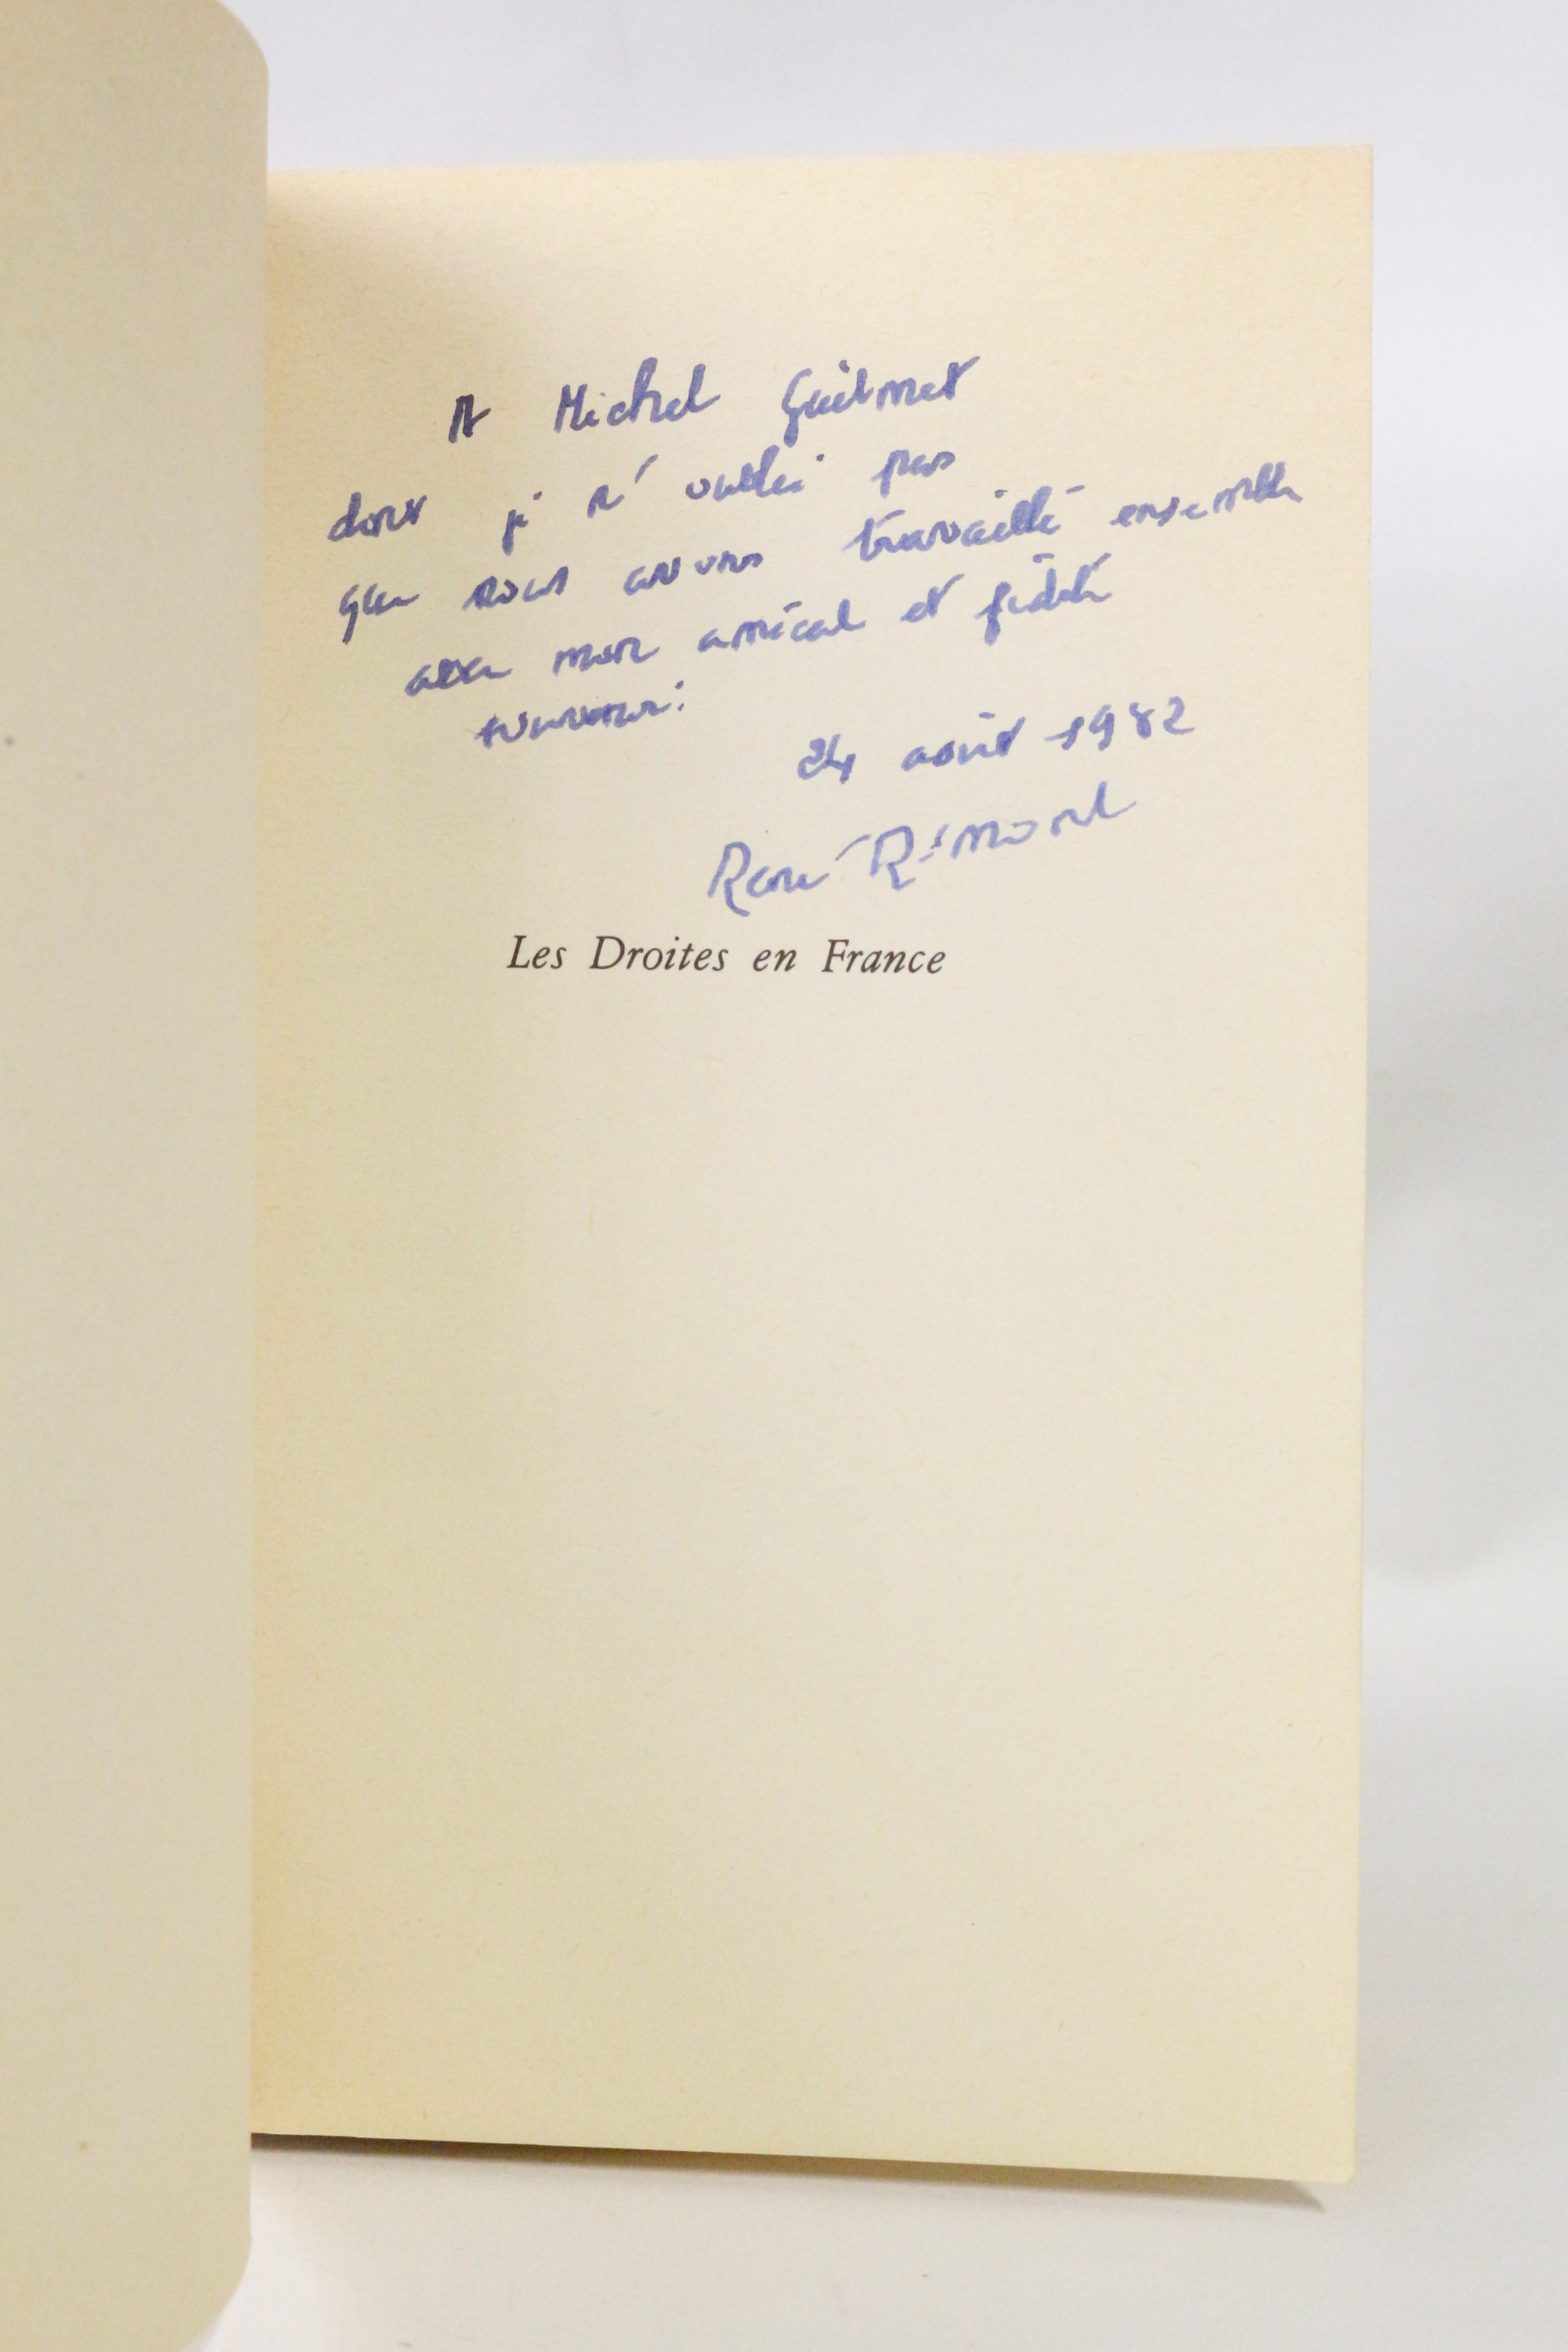 A Michel Guilmet
dont je n'oublie pas
que nous avons travaillé ensemble
avec mon amical et fidèle
souvenir
24 août 1982
René Rémond
Les Droites en France